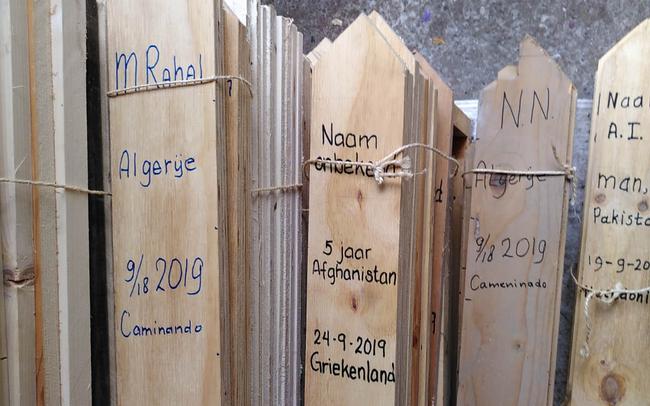 M Rahal
Algerije
9/18 2019
Caminando
Naam
onbekend
5 jaar
Afghanistan
24-9-2019
Griekenland
N.N.
Algerije
9/18 2019
Cameninado
Naa
A.I.
man,
Pakista
19-9-20